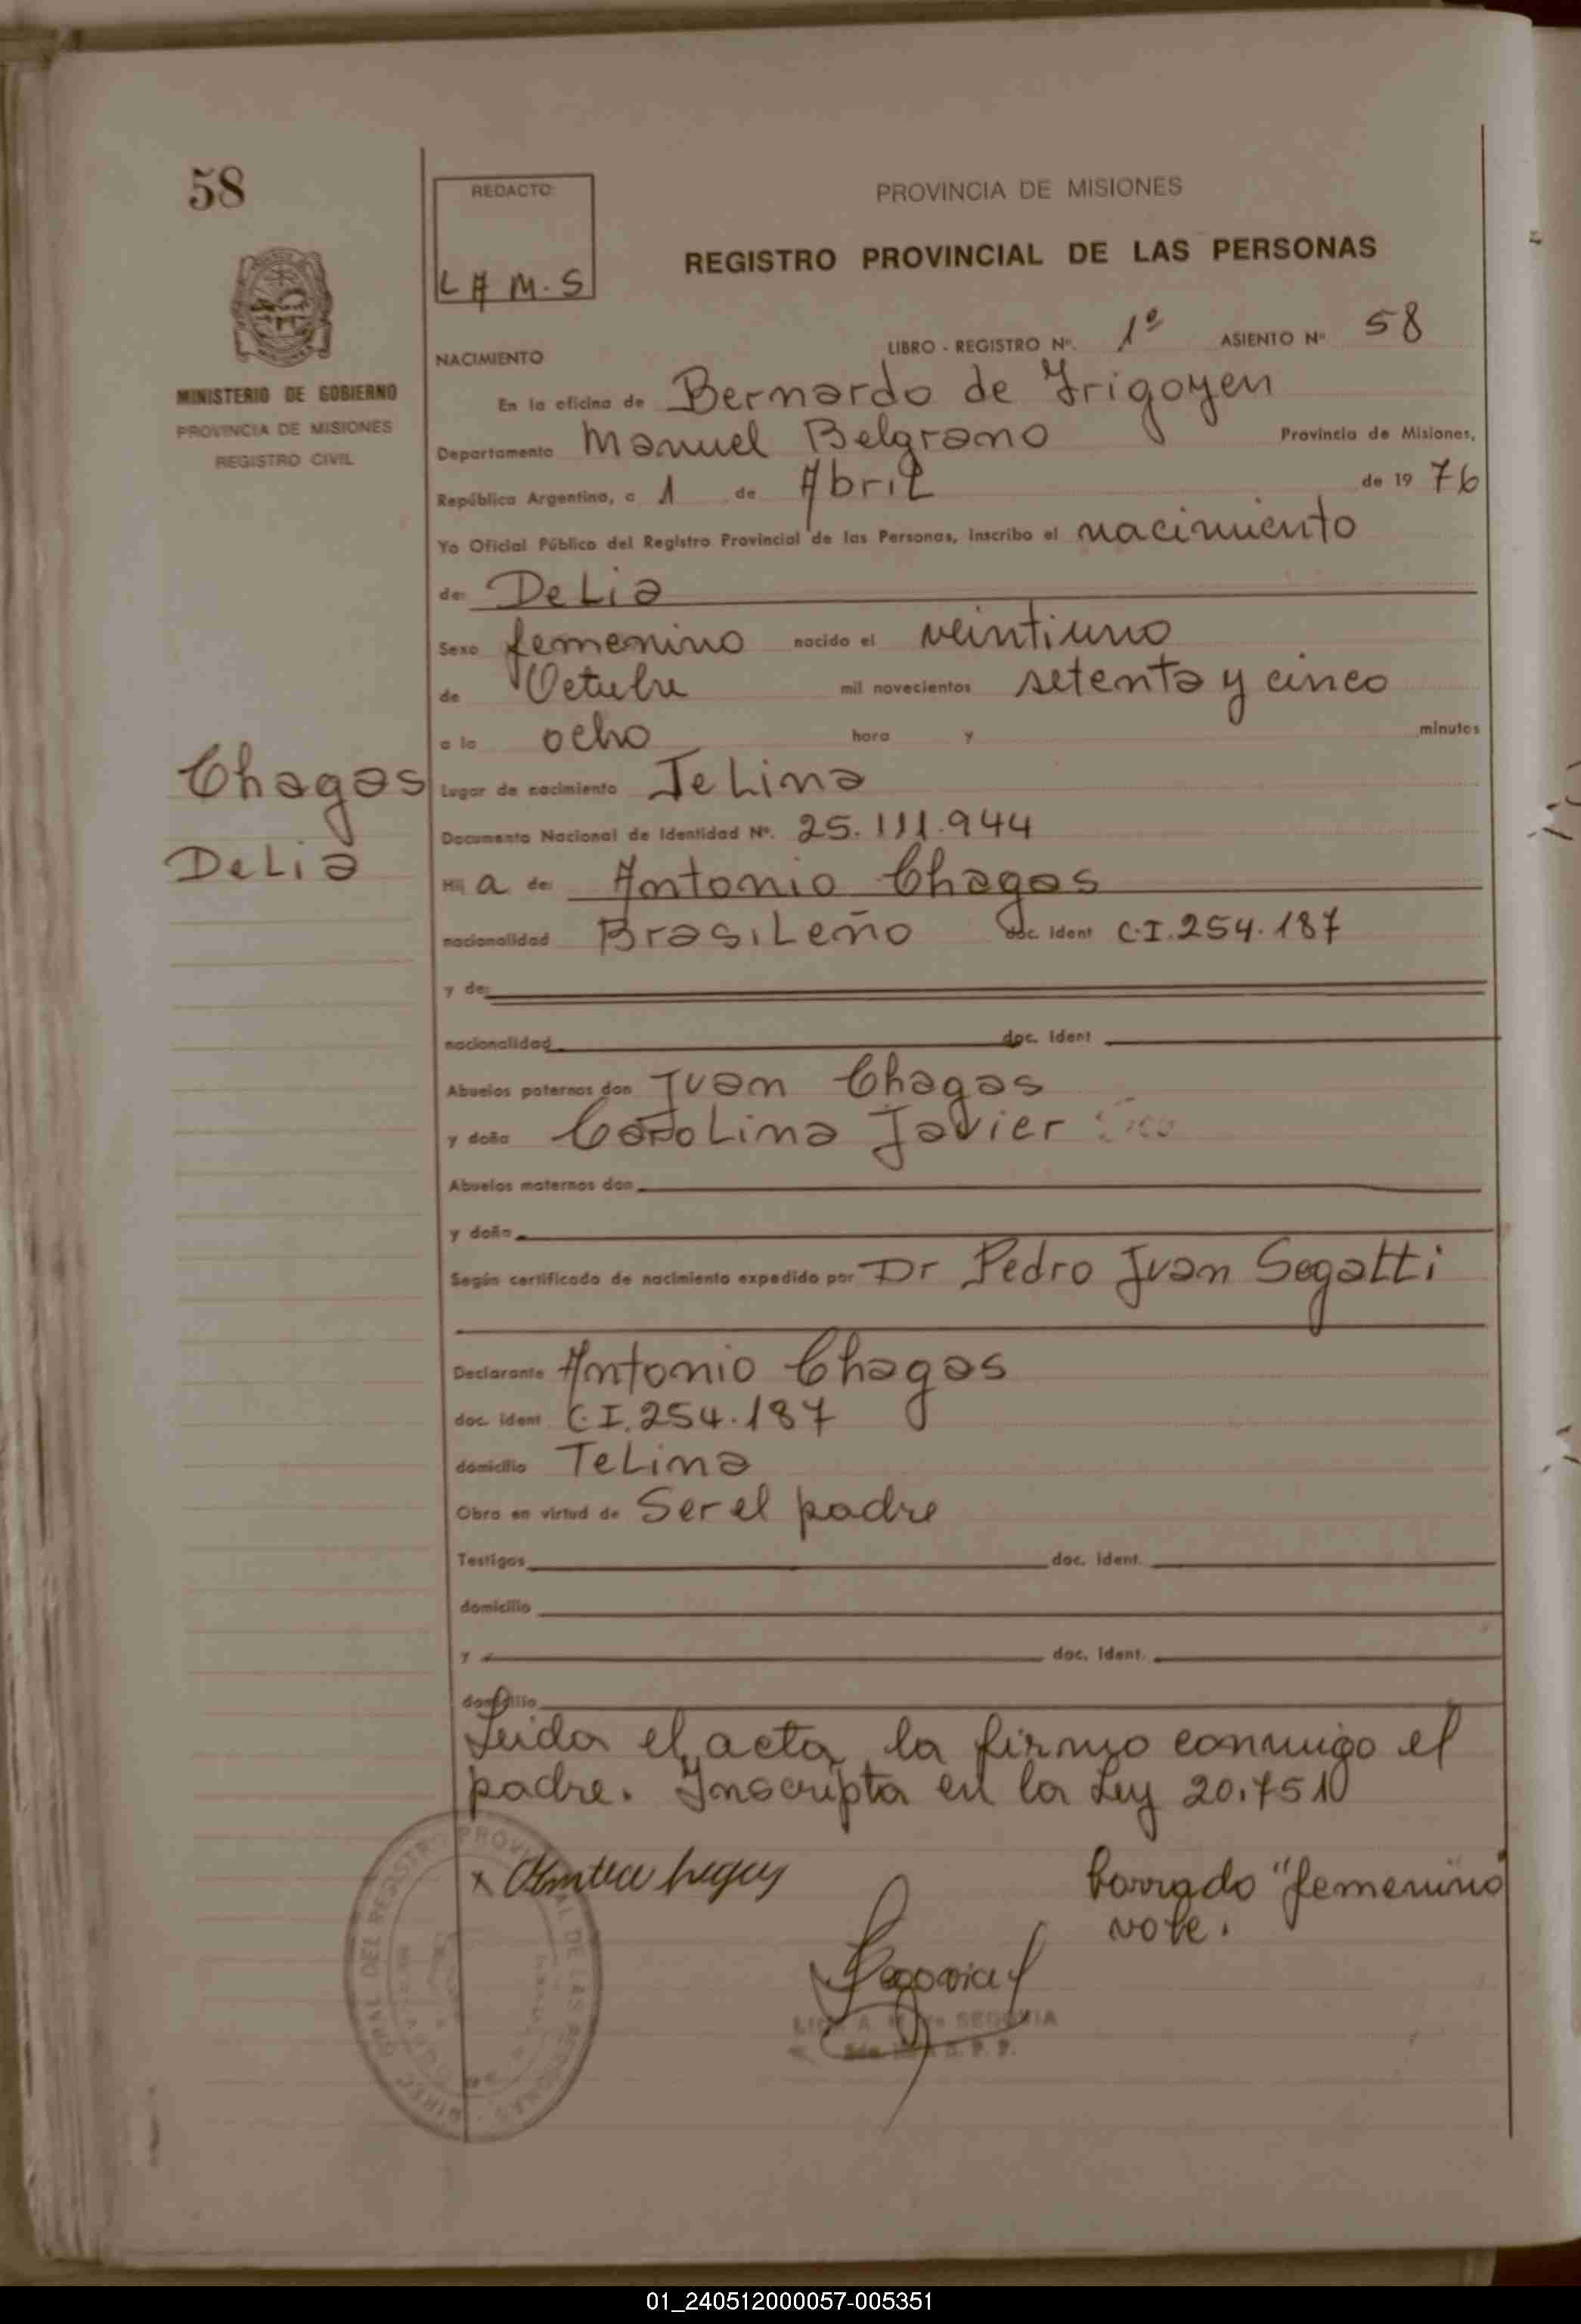 58
REDACTO:
L A M. S
PROVINCIA DE MISIONES
REGISTRO PROVINCIAL DE LAS PERSONAS
MINISTERIO DE GOBIERNO
PROVINCIA DE MISIONES
REGISTRO CIVIL
NACIMIENTO LIBRO - REGISTRO Nº. 1º ASIENTO Nº 58
En la oficina de Bernardo de Yrigoyen
Departamento Manuel Belgrano Provincia de Misiones,
República Argentina, a 1 de Abril de 19 76
Yo Oficial Público del Registro Provincial de las Personas, inscribo el nacimiento
de: Delia
Sexo femenino nacido el veintiuno
de Octubre mil novecientos setenta y cinco
a la ocho hora y minutos
Chagas
Delia
Lugar de nacimiento Telina
Documento Nacional de Identidad Nº. 25.111.944
Hij a de: Antonio Chagas
nacionalidad Brasileño doc. ident C.I. 254.187
y de:
nacionalidad doc. ident
Abuelos paternos don Juan Chagas
y doña Carolina Javier
Abuelos maternos don
y doña
Según certificado de nacimiento expedido por Dr Pedro Juan Segatti
Declarante Antonio Chagas
doc. ident C.I. 254.187
domicilio Telina
Obra en virtud de Ser el padre
Testigos doc. ident.
domicilio
y doc. ident.
domicilio
Leida el acta, la firmo conmigo el
padre. Inscripta en la Ley 20.751
x
borrado "femenino"
vale.
Segovia
SEGOVIA
01_240512000057-005351